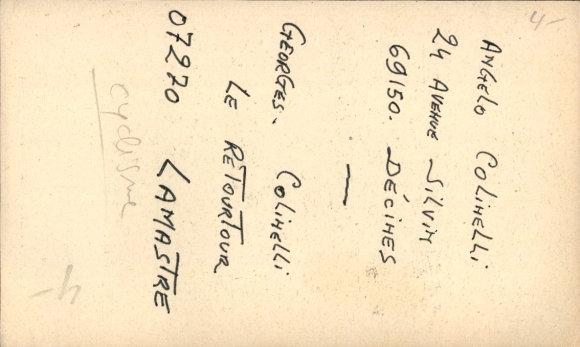 ANGELO COLINELLI
24 AVENUE SILVIN
69150. DÉCINES
—
GEORGES. COLINELLI
LE RETOURTOUR
07270 LAMASTRE
cyclisme
4-
4-